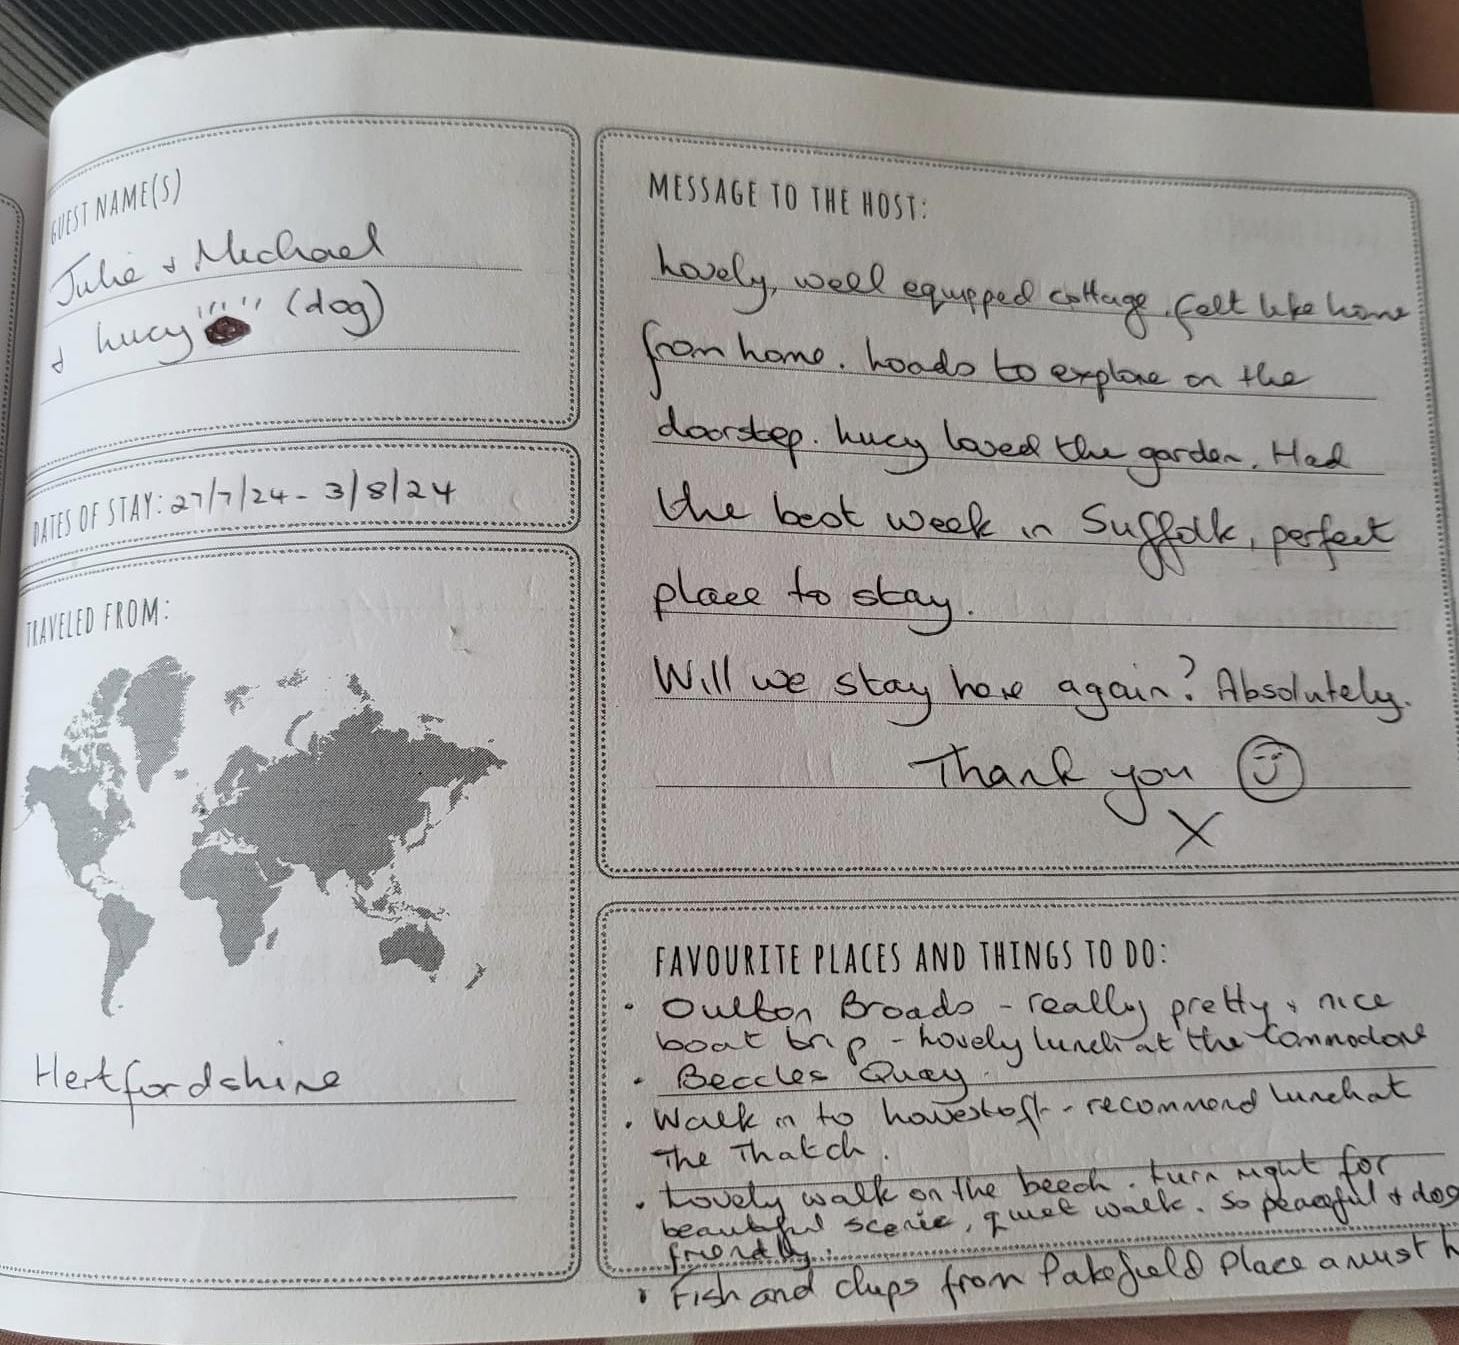 GUEST NAME(S)
Julie & Michael
& Lucy (dog)
DATES OF STAY: 27/7/24 - 3/8/24
TRAVELED FROM:
Hertfordshire
MESSAGE TO THE HOST:
Lovely, well equipped cottage, felt like home
from home. Loads to explore on the
doorstep. Lucy loved the garden. Had
the best week in Suffolk, perfect
place to stay.
Will we stay here again? Absolutely.
Thank you
X
FAVOURITE PLACES AND THINGS TO DO:
• Oulton Broads - really pretty & nice
boat trip - Lovely lunch at the Commodore
• Beccles Quay.
• Walk in to Lowestoft - recommend lunch at
The Thatch.
• Lovely walk on the beech. turn right for
beautiful scenic, quiet walk. So peaceful & dog
friendly.
• Fish and chips from Pakefield Place a must